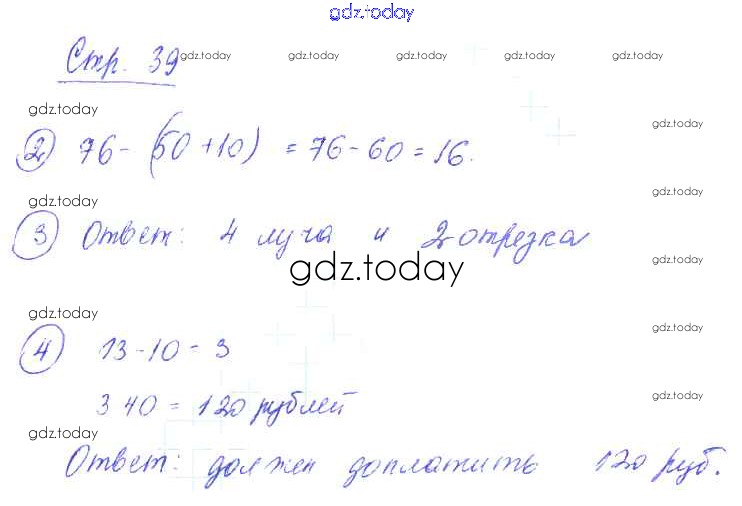 gdz.today
Стр. 39 gdz.today gdz.today gdz.today gdz.today gdz.today
gdz.today
gdz.today
2 76-(50+10) = 76-60=16.
gdz.today
gdz.today
3 Ответ: 4 луча и 2 отрезка
gdz.today
gdz.today
gdz.today
gdz.today
4 13-10=3
gdz.today
3 40 = 120 рублей
gdz.today
gdz.today
Ответ: должен доплатить 120 руб.